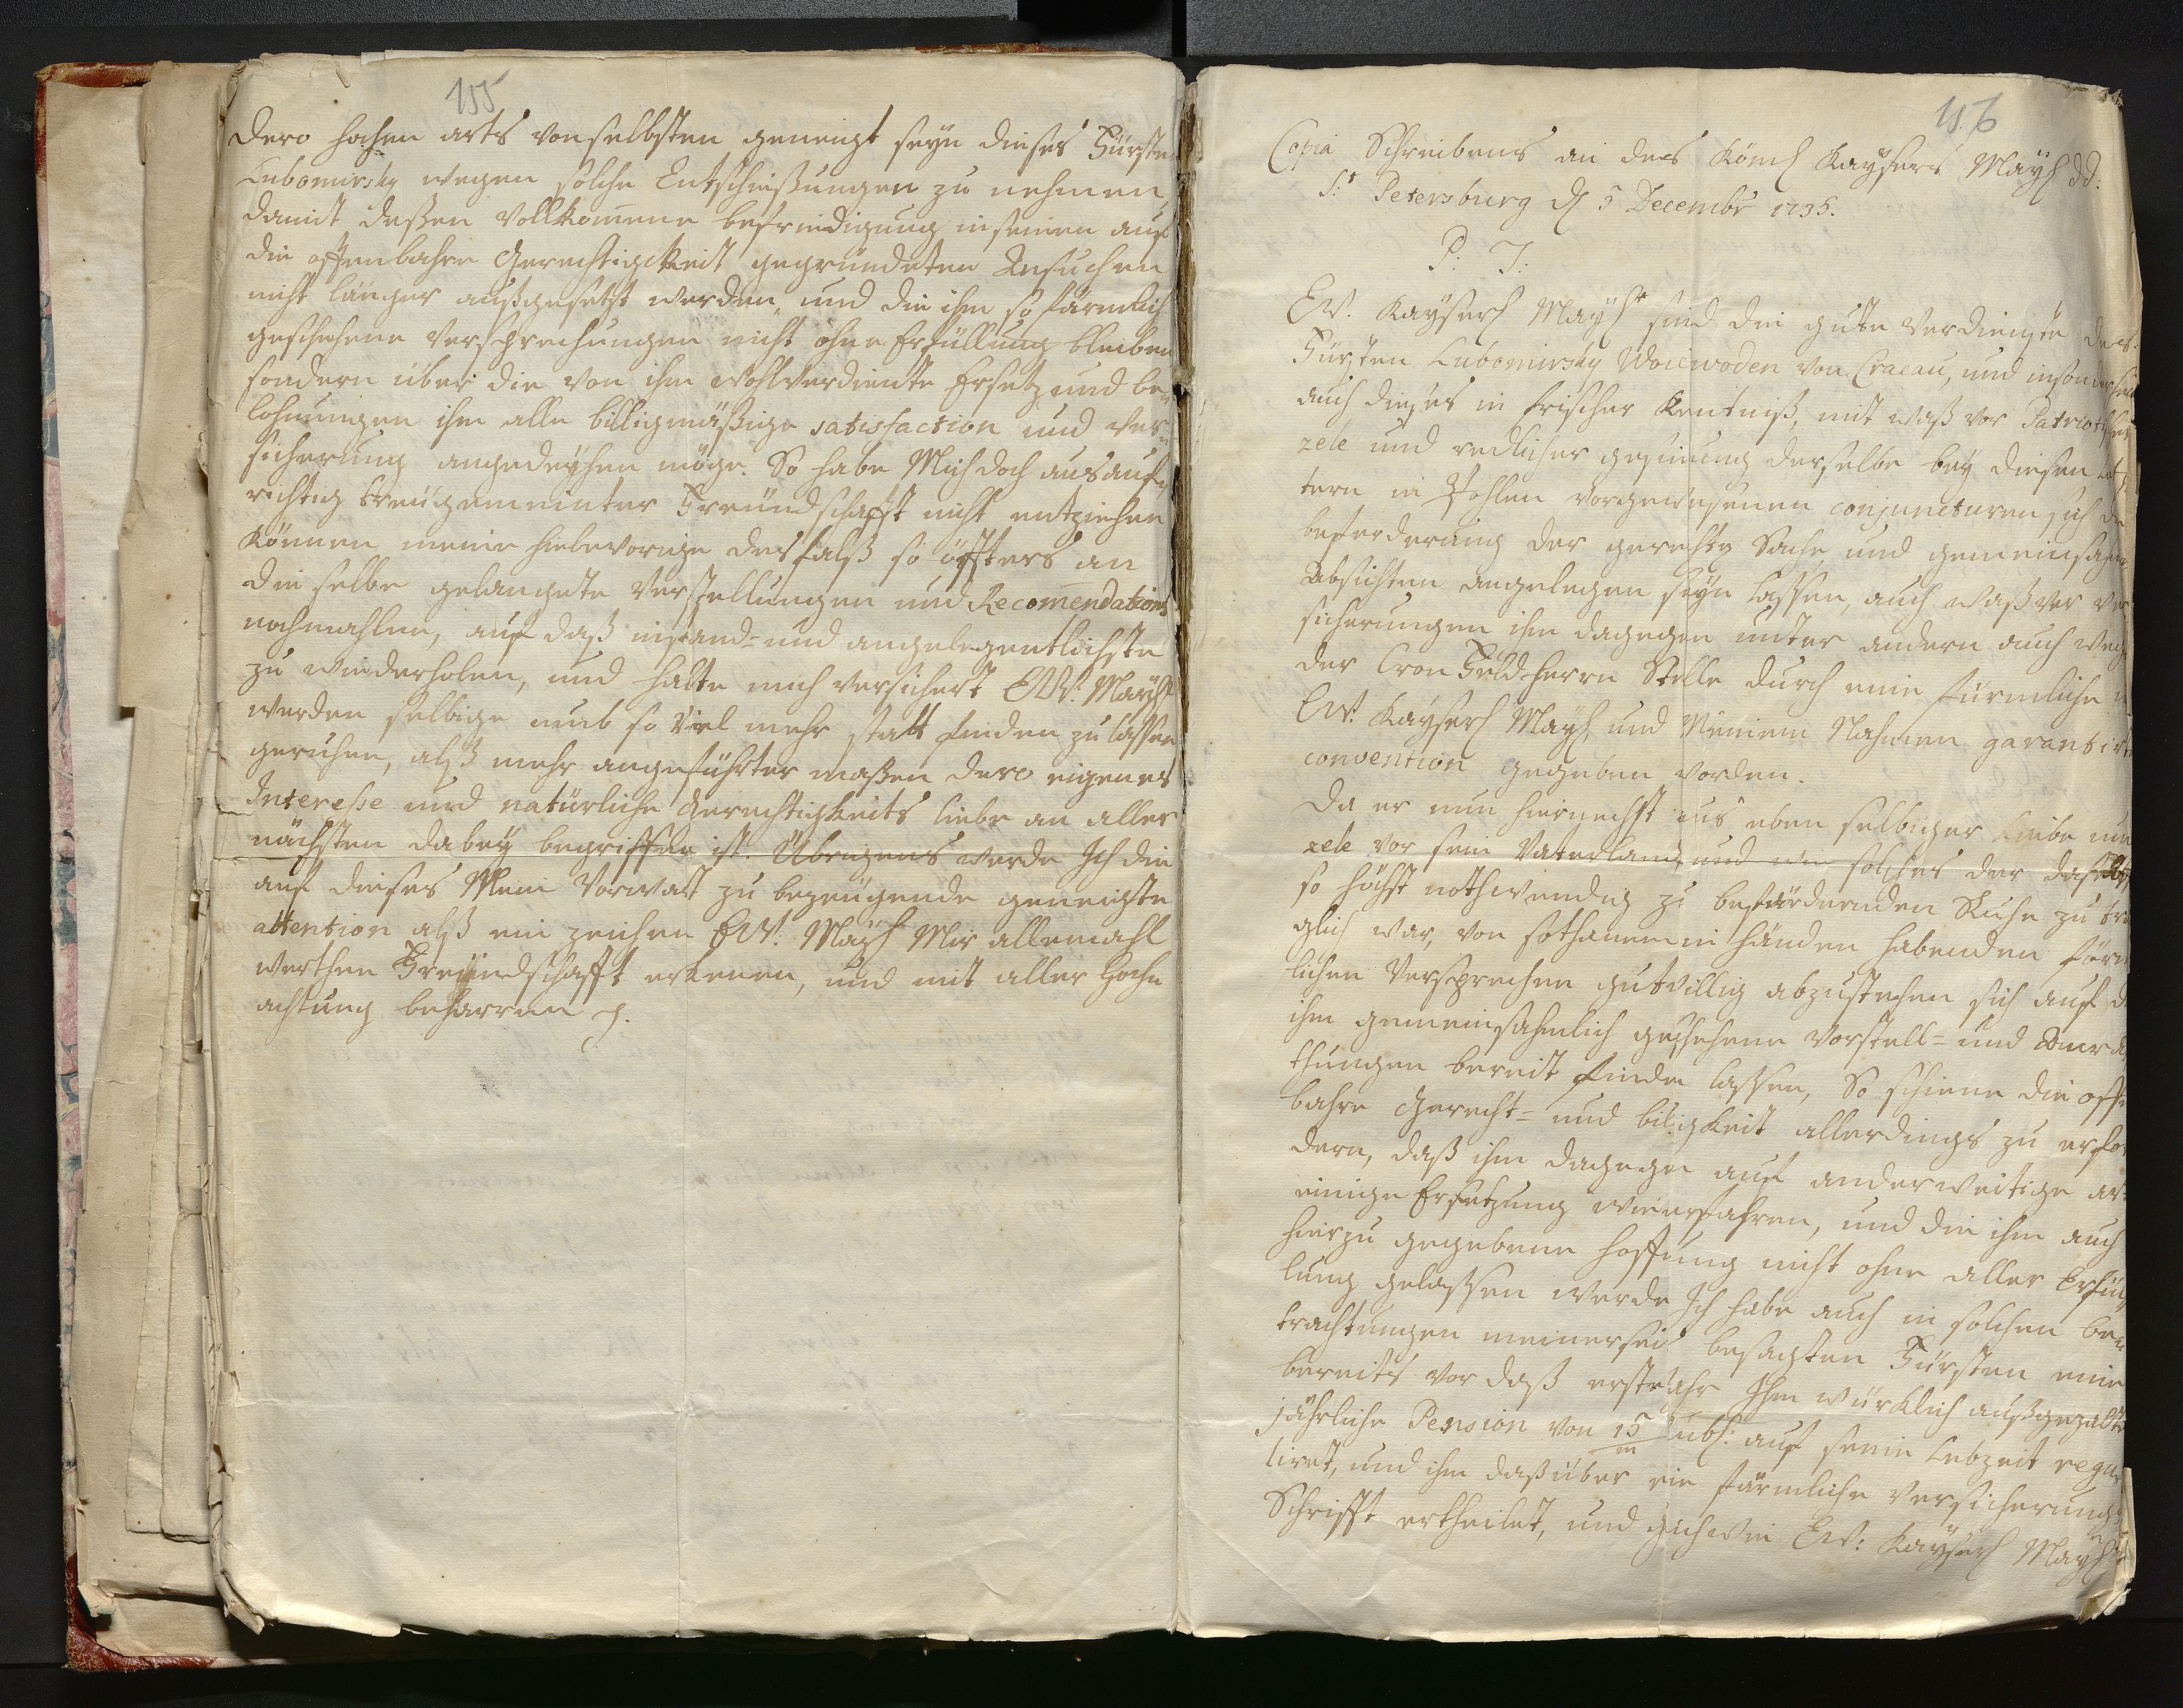 155
Dero hohen orts von selbsten geneigt seyn dieses Fürsten
Lubomirsky wegen solche Entschließungen zu nehmen,
damit deßen vollkomene befriedigung in seinem auf
die offenbahre Gerechtigkeit gegründeten Ansuchen
nicht länger außgesetzt werden, und die ihm so förmlich
geschehene Versprechungen nicht ohne Erfüllung bleiben
sondern über die von ihm wohlverdiente Ersetz und be-
lohnungen ihm alle billigmäßige satisfaction und Ver-
sicherung angedeyhen möge. So habe Mich doch aus auf-
richtig treugemeinter Freundschafft nicht entziehen
können meine hiebevorige desfalß so öffters an
die selbe gelangete Vorstellungen und Recomendations
nochmahlen, auf daß instand- und angelegentlichste
zu wiederholen, und halte mich versichert EW: Mayst
werden selbige umb so viel mehr statt finden zu lassen
geruhen, alß mehr angeführter maßen dero eigenes
Interesse und natürliche Gerechtigkeits liebe an aller
nächsten dabey begriffen ist. Übrigens werde Ich die
auf dieses Mein Vorwort zu bezeugende geneigte
attention alß ein zeichen EW: Mayst Mir allemahl
werthen Freundschafft erkenen, und mit aller Hoch-
achtung beharren p.
156
Copia Schreibens an des Römch Kaysers Mayst dd:
St: Petersburg d 5 Decembr 1735.
P: T:
EW. Kayserl Mayst sind die gute Verdienste des
Fürsten Lubomirsky Woiwoden von Cracau, und insonderheit
auch dieses in frischer Kentniß, mit waß vor Patriotischen
zele und redlicher gesinnung derselbe bey diesen
tern in Pohlen vorgewesenen conjuncturen sich
beforderung der gerechten Sache und gemeinsahmen
Absichten angelegen seyn lassen, auch waß vor Ver
sicherungen ihm dagegen unter andern auch wegen
der Cron Feld-Herrn Stelle durch eine förmliche
EW: Kayserl Mayst und Meinem Nahmen garantirte
convention gegeben worden.
Da er nun hiernechst aus eben selbiger Liebe und
zele vor sein Vaterland, und wie solches der daselbst
so höchst nothwendig zu befördernden Ruhe zu trä
glich war, von sothanem in händen habenden förm
lichen Versprechen gutwillig abzustehen sich auf
ihm gemeinsahmlich geschehene Vorstell- und Anra
thungen bereit finden lassen, So schiene die offen
bahre Gerecht- und biligkeit allerdings zu erfor
dern, daß ihm dagegen auf anderweitige art
einige Ersetzung wiederfahren, und die ihm auch
hierzu gegebene hoffnung nicht ohne aller Erfül
lung gelassen werde Ich habe auch in solchen be
trachtungen meinerseits besagten Fürsten eine
bereits vor daß erste Jahr Ihm würcklich außgezalte
jährliche Pension von 15/m Rubl: auf seine Lebzeit regu
liret, und ihm daßüber ein förmliche Versicherungs
Schrifft ertheilet, und gleichwie EW: Kayserl Mayst